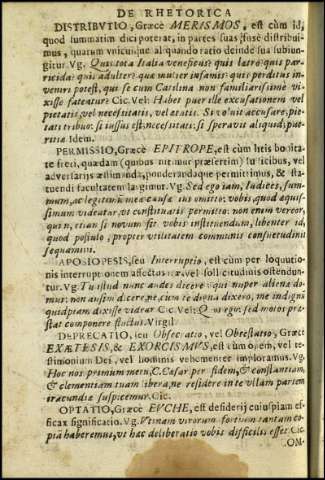 DE RHETORICA
DISTRIBVTIO, Græcè MERISMOS, est cùm id,
quod summatim dici poterat, in partes suas, fusè distribui-
mus, quarum vnicuique aliquando ratio deinde sua subiun-
gitur. Vg. Quis tota Italia veneficus: quis latro: quis par-
ricida: quis adulter: quæ mulier infamis: quis perditus in-
veniri potest, qui se cum Catilina non familiarissimè vi-
xisse fateatur: Cic. Vel: Habet puer ille excusationem vel
pietatis, vel necessitatis, vel ætatis. Si volui accusare, pie-
tati tribuo: si iussus est, necessitati: si speravit aliquid, pue-
ritiæ. Idem.
PERMISSIO, Græcè EPITROPE, est cùm
freti, quædam (quibus nitimur præsertim) Iudicibus, vel
adversarijs æstimanda, ponderandaque permittimus, &
tuendi facultatem largimur. Vg. Sed ego iam, Iudices, sum-
mum, ac legitimum meæ causæ ius omitto: vobis quod æquis-
simum videatur, vt constituatis permitto: non enim vereor,
quin, etiam si novum sit vobis instituendum, libenter id,
quod postulo, propter vtilitatem communis consuetudinis
sequamini.
APOSIOPESIS, seu Interruptio, est cùm per loquutio-
nis interruptionem affectus vel sollicitudinis ostendun-
tur. Vg. Tu istud nunc audes dicere qui nuper alienæ do-
mui: non ausim dicere, ne, cùm te digna dixero, me indignum
quidpiam dixisse videar Cic. Vel: Quos ego: sed motos præ-
stat componere fluctus. Virgil.
DEPRECATIO, seu Obsecratio, vel Obtestatio, Græcè
EXÆTESIS, & EXORCISMVS, est cùm opem, vel te-
stimonium Dei, vel hominis vehementer imploramus. Vg.
Hoc nos primum metu, C. Cæsar per fidem, & constantiam,
& clementiam tuam libera, ne residere in te vllam partem
iracundiæ suspicemur. Cic.
OPTATIO, Græcè EVCHE, est desiderij cuiuspiam ef-
ficax significatio. Vg. Vtinam virorum fortium tantam co-
piã haberemus, vt hæc deliberatio vobis difficilis esset. Cic.
OM-